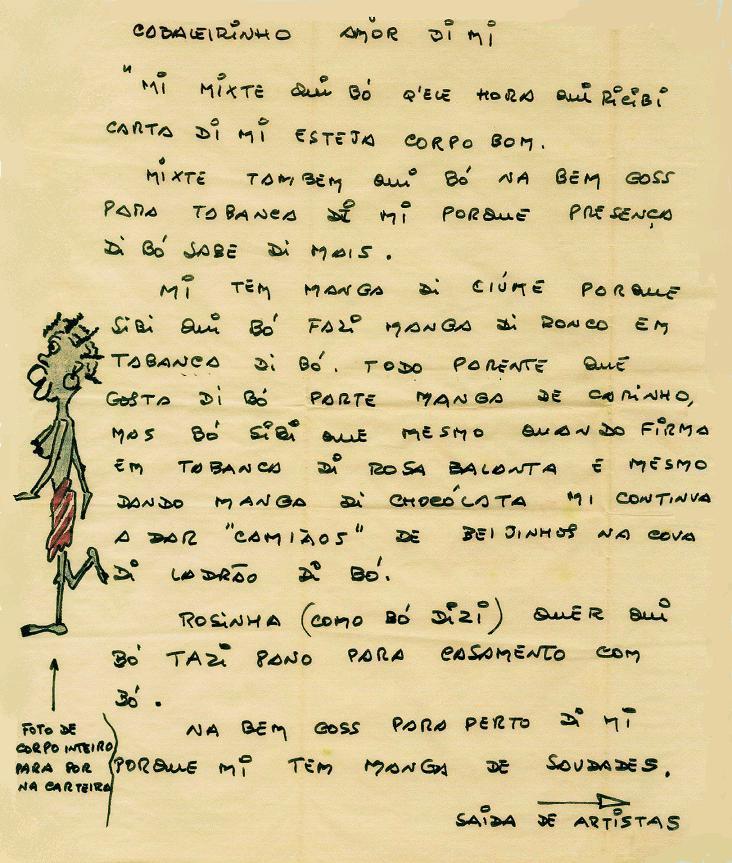 CABALEIRINHO AMÔR DI MI
"MI MIXTE QUI BÓ Q'ELE HORA QUI RICIBI
CARTA DI MI ESTEJA CORPO BOM.
MIXTE TAMBEM QUI BÓ NA BEM GOSS
PARA TABANCA DI MI PORQUE PRESENÇA
DI BÓ SABE DI MAIS.
MI TEM MANGA DI CIÚME PORQUE
SIBI QUI BÓ FAZI MANGA DI RONCO EM
TABANCA DI BÓ. TODO PARENTE QUE
GOSTA DI BÓ PARTE MANGA DE CARINHO,
MAS BÓ SIBI QUE MESMO QUANDO FIRMA
EM TABANCA DI ROSA BALANTA E MESMO
DANDO MANGA DI CHOCÓLATA MI CONTINVA
A DAR "CAMIÃOS" DE BEIJINHOS NA COVA
DI LADRÃO DI BÓ.
ROSINHA (COMO BÓ DIZI) QUER QUI
BÓ TAZI PANO PARA CASAMENTO COM
BÓ.
NA BEM GOSS PARA PERTO DI MI
PORQUE MI TEM MANGA DE SAUDADES.
SAIDA DE ARTISTAS
FOTO DE
CORPO INTEIRO
PARA POR
NA CARTEIRA